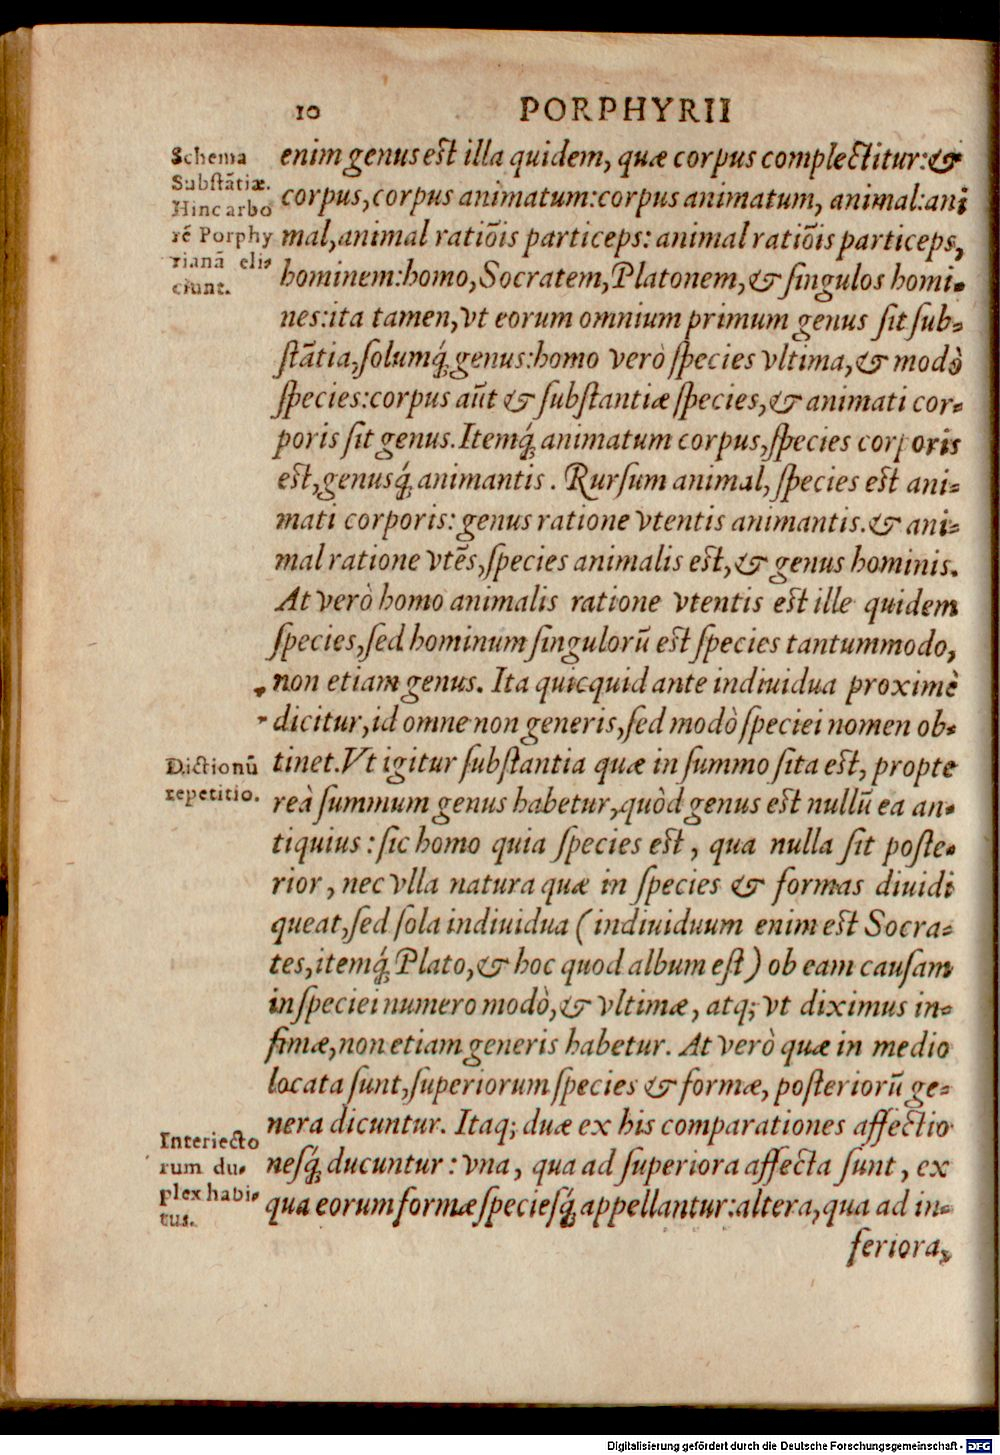 10 PORPHYRII
Schema
Substātiæ.
Hinc arbo
rē Porphy
rianā eli-
ciunt.
enim genus est illa quidem, quæ corpus complectitur: &
corpus, corpus animatum: corpus animatum, animal: ani
mal, animal ratiōis particeps: animal ratiōis particeps,
hominem: homo, Socratem, Platonem, & singulos homi-
nes: ita tamen, vt eorum omnium primum genus sit sub-
stātia, solumq́; genus: homo verò species vltima, & modò
species: corpus aūt & substantiæ species, & animati cor-
poris sit genus. Itemq́; animatum corpus, species corporis
est, genusq́; animantis. Rursum animal, species est ani-
mati corporis: genus ratione vtentis animantis. & ani-
mal ratione vtēs, species animalis est, & genus hominis.
At verò homo animalis ratione vtentis est ille quidem
species, sed hominum singulorū est species tantummodo,
non etiam genus. Ita quicquid ante indiuidua proximè
dicitur, id omne non generis, sed modò speciei nomen ob-
Dictionū
repetitio.
tinet. Vt igitur substantia quæ in summo sita est, propte
reà summum genus habetur, quòd genus est nullū ea an-
tiquius: sic homo quia species est, qua nulla sit poste-
rior, nec vlla natura quæ in species & formas diuidi
queat, sed sola indiuidua (indiuiduum enim est Socra-
tes, itemq́; Plato, & hoc quod album est) ob eam causam
in speciei numero modò, & vltimæ, atq; vt diximus in-
fimæ, non etiam generis habetur. At verò quæ in medio
locata sunt, superiorum species & formæ, posteriorū ge-
nera dicuntur. Itaq; duæ ex his comparationes affectio
Interiecto
rum du-
plex habi-
tus.
nesq́; ducuntur: vna, qua ad superiora affecta sunt, ex
qua eorum formæ speciesq́; appellantur: altera, qua ad in-
feriora,
Digitalisierung gefördert durch die Deutsche Forschungsgemeinschaft - DFG